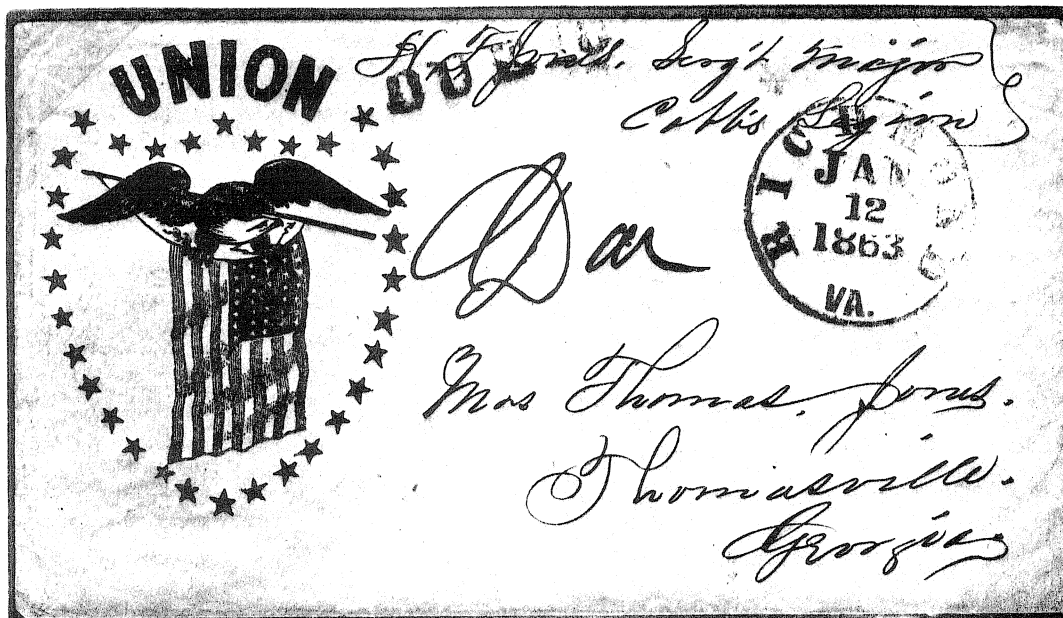 UNION
H. F. Jones. Sergt. Major
Cobbs Legion
DUE
RICHMOND
JAN
12
1863
VA.
Due
Mrs Thomas. Jones.
Thomasville.
Georgia